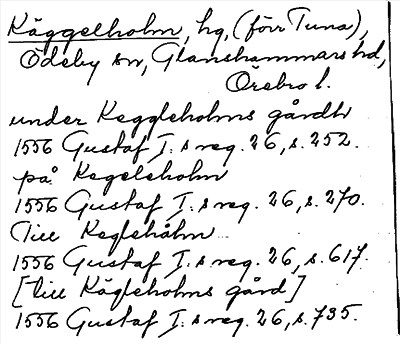 Käggelholm, hg, (förr Tuna),
Ödeby sn, Glanshammars hd,
Örebro l.
under Keggleholms gårdh
1556 Gustaf I:s reg. 26, s. 252.
på Kegeleholm
1556 Gustaf I:s reg. 26, s. 270.
Till Keglehålm
1556 Gustaf I:s reg. 26, s. 617.
[till Kägleholms gård]
1556 Gustaf I:s reg. 26, s. 735.